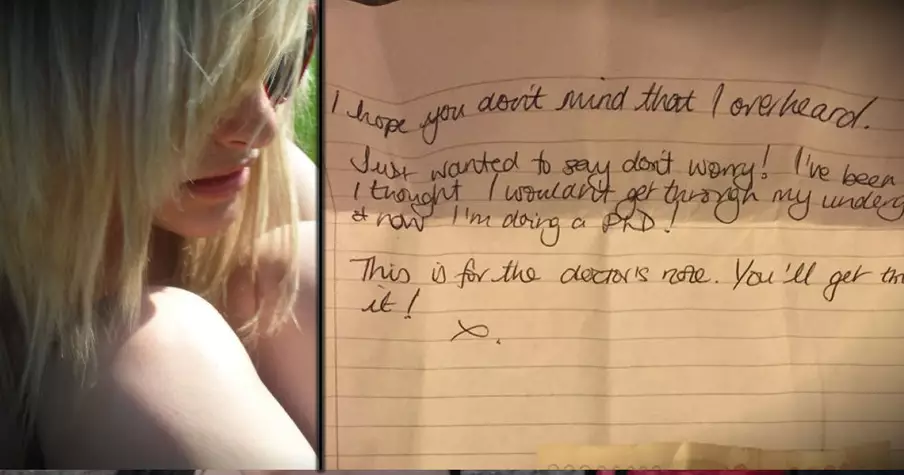 I hope you don't mind that I overheard.
Just wanted to say don't worry! I've been
I thought I wouldn't get through my underg
& now I'm doing a PhD!
This is for the doctor's note. You'll get
it!
x.